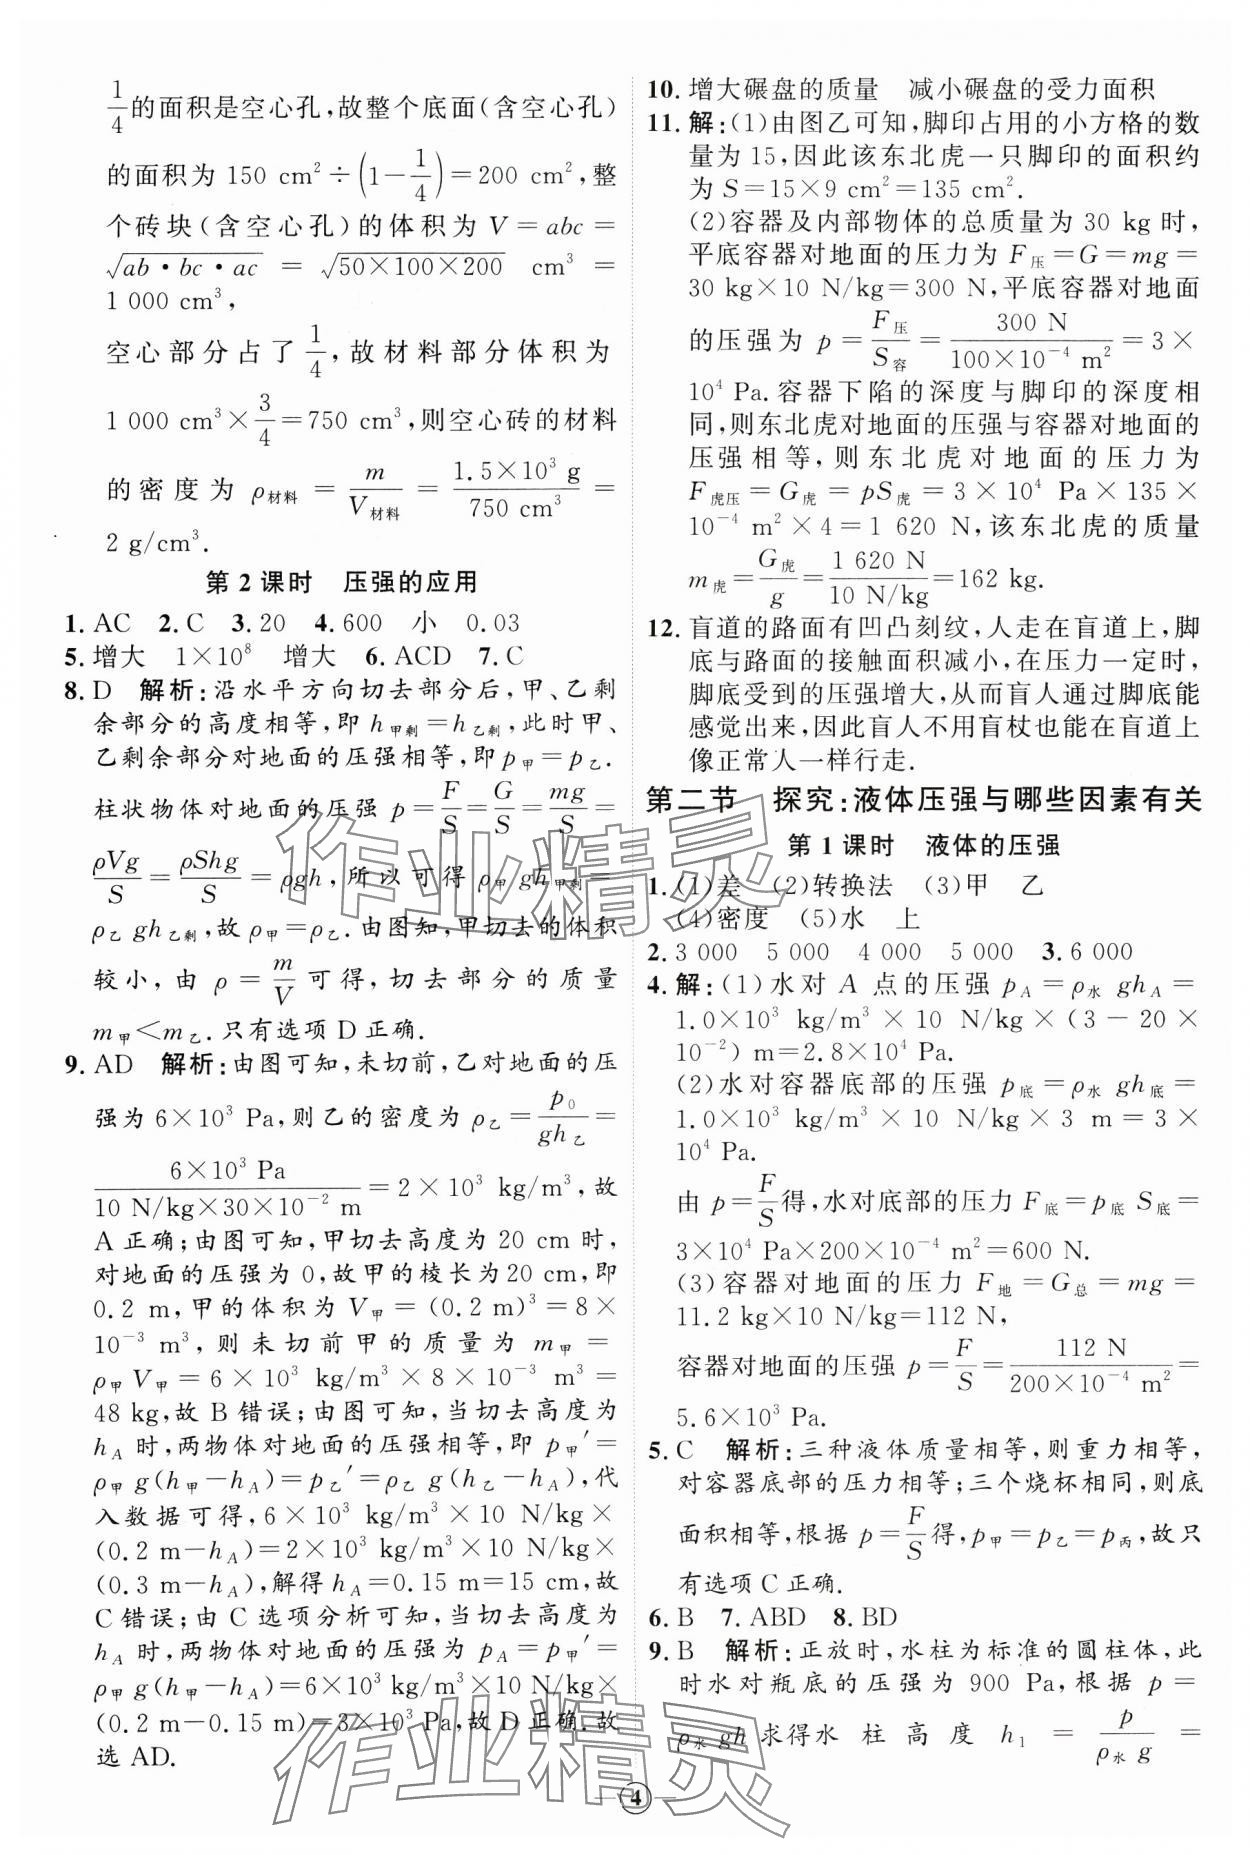 1/4的面积是空心孔,故整个底面(含空心孔)
的面积为 150 cm²÷(1-1/4)=200 cm²,整
个砖块(含空心孔)的体积为 V=abc=
√(ab·bc·ac) = √(50×100×200) cm³ =
1 000 cm³,
空心部分占了1/4,故材料部分体积为
1 000 cm³×3/4=750 cm³,则空心砖的材料
的密度为 ρ材料 = m/V材料 = 1.5×10³ g/750 cm³ =
2 g/cm³.
第2课时 压强的应用
1. AC 2. C 3. 20 4. 600 小 0.03
5. 增大 1×10⁸ 增大 6. ACD 7. C
8. D 解析:沿水平方向切去部分后,甲、乙剩
余部分的高度相等,即 h甲剩=h乙剩,此时甲、
乙剩余部分对地面的压强相等,即 p甲=p乙.
柱状物体对地面的压强 p=F/S=G/S=mg/S=
ρVg/S=ρShg/S=ρgh,所以可得 ρ甲 gh甲剩=
ρ乙 gh乙剩,故 ρ甲=ρ乙.由图知,甲切去的体积
较小,由 ρ=m/V可得,切去部分的质量
m甲<m乙.只有选项 D 正确.
9. AD 解析:由图可知,未切前,乙对地面的压
强为 6×10³ Pa,则乙的密度为 ρ乙=p₀/gh乙=
6×10³ Pa/(10 N/kg×30×10⁻² m)=2×10³ kg/m³,故
A 正确;由图可知,甲切去高度为 20 cm 时,
对地面的压强为 0,故甲的棱长为 20 cm,即
0.2 m,甲的体积为 V甲=(0.2 m)³=8×
10⁻³ m³,则未切前甲的质量为 m甲=
ρ甲V甲=6×10³ kg/m³×8×10⁻³ m³=
48 kg,故 B 错误;由图可知,当切去高度为
hA 时,两物体对地面的压强相等,即 p甲′=
ρ甲 g(h甲-hA)=p乙′=ρ乙 g(h乙-hA),代
入数据可得,6×10³ kg/m³×10 N/kg×
(0.2 m-hA)=2×10³ kg/m³×10 N/kg×
(0.3 m-hA),解得 hA=0.15 m=15 cm,故
C 错误;由 C 选项分析可知,当切去高度为
hA 时,两物体对地面的压强为 pA=p甲′=
ρ甲 g(h甲-hA)=6×10³ kg/m³×10 N/kg×
(0.2 m-0.15 m)=3×10³ Pa,故 D 正确.故
选 AD.
10. 增大碾盘的质量 减小碾盘的受力面积
11. 解:(1)由图乙可知,脚印占用的小方格的数
量为 15,因此该东北虎一只脚印的面积约
为 S=15×9 cm²=135 cm².
(2)容器及内部物体的总质量为 30 kg 时,
平底容器对地面的压力为 F压=G=mg=
30 kg×10 N/kg=300 N,平底容器对地面
的压强为 p=F压/S容=300 N/(100×10⁻⁴ m²)=3×
10⁴ Pa.容器下陷的深度与脚印的深度相
同,则东北虎对地面的压强与容器对地面的
压强相等,则东北虎对地面的压力为
F虎压=G虎=pS虎=3×10⁴ Pa×135×
10⁻⁴ m²×4=1 620 N,该东北虎的质量
m虎=G虎/g=1 620 N/10 N/kg=162 kg.
12. 盲道的路面有凹凸刻纹,人走在盲道上,脚
底与路面的接触面积减小,在压力一定时,
脚底受到的压强增大,从而盲人通过脚底能
感觉出来,因此盲人不用盲杖也能在盲道上
像正常人一样行走.
第二节 探究:液体压强与哪些因素有关
第1课时 液体的压强
1. (1)差 (2)转换法 (3)甲 乙
(4)密度 (5)水 上
2. 3 000 5 000 4 000 5 000 3. 6 000
4. 解:(1)水对 A 点的压强 pA=ρ水 ghA=
1.0×10³ kg/m³×10 N/kg×(3-20×
10⁻²) m=2.8×10⁴ Pa.
(2)水对容器底部的压强 p底=ρ水 gh底=
1.0×10³ kg/m³×10 N/kg×3 m=3×
10⁴ Pa.
由 p=F/S得,水对底部的压力 F底=p底 S底=
3×10⁴ Pa×200×10⁻⁴ m²=600 N.
(3)容器对地面的压力 F地=G总=mg=
11.2 kg×10 N/kg=112 N,
容器对地面的压强 p=F/S=112 N/(200×10⁻⁴ m²)=
5.6×10³ Pa.
5. C 解析:三种液体质量相等,则重力相等,
对容器底部的压力相等;三个烧杯相同,则底
面积相等,根据 p=F/S得,p甲=p乙=p丙,故只
有选项 C 正确.
6. B 7. ABD 8. BD
9. B 解析:正放时,水柱为标准的圆柱体,此
时水对瓶底的压强为 900 Pa,根据 p=
ρ水 gh 求得水柱高度 h₁ = p/ρ水 g =
4
作业精灵
作业精灵